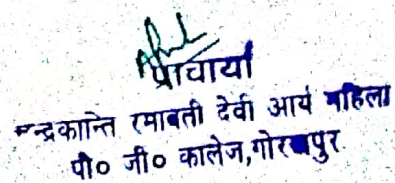 प्राचार्या
चन्द्रकान्ति रमाबती देवी आर्य महिला
पी० जी० कालेज,गोरखपुर